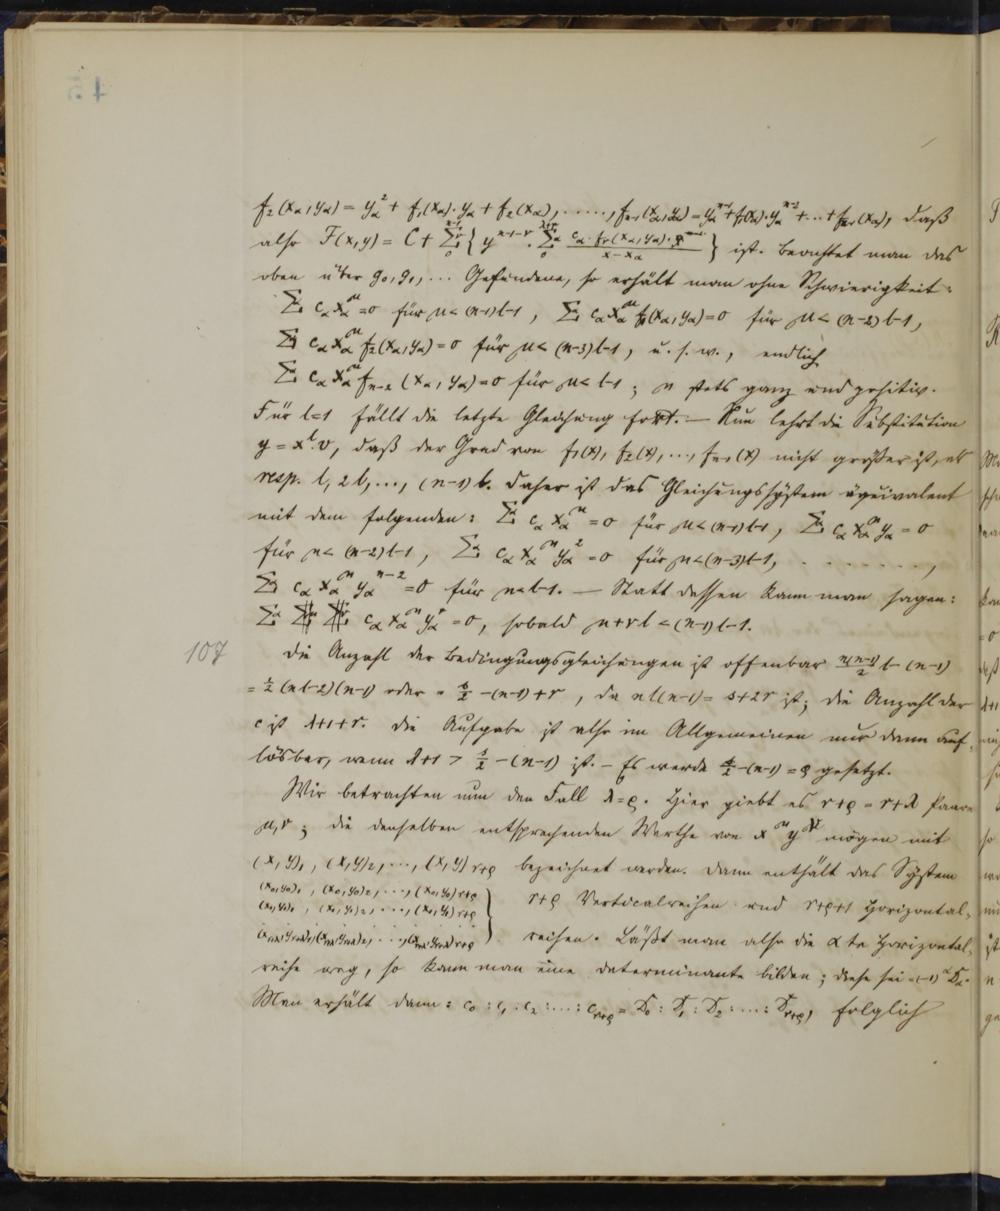 45
f₂(x_α, y_α) = y_α² + f₁(x_α)·y_α + f₂(x_α), ....., f_{n-1}(x_α, y_α) = y_α^{n-1} + f₁(x_α)·y_α^{n-2} + ... + f_{n-1}(x_α), daß
also F(x,y) = C + Σ_0^{n-1} { y^{n-1-ν} · Σ_0^{λ+r} c_α · f_ν(x_α, y_α) / (x - x_α) } ist. Beachtet man das
oben über g₀, g₁, ... Gefundene, so erhält man ohne Schwierigkeit:
Σ c_α x_α^μ = 0 für μ < (n-1)l-1, Σ c_α x_α^μ f₁(x_α, y_α) = 0 für μ < (n-2)l-1,
Σ c_α x_α^μ f₂(x_α, y_α) = 0 für μ < (n-3)l-1, u. s. w., endlich
Σ c_α x_α^μ f_{n-2}(x_α, y_α) = 0 für μ < l-1; μ stets ganz und positiv.
Für l=1 fällt die letzte Gleichung fort. — Nun lehrt die Substitution
y = x^l·v, daß der Grad von f₁(x), f₂(x), ..., f_{n-1}(x) nicht größer ist, als
resp. l, 2l, ..., (n-1)l. Daher ist das Gleichungssystem äquivalent
mit dem folgenden: Σ c_α x_α^μ = 0 für μ < (n-1)l-1, Σ c_α x_α^μ y_α = 0
für μ < (n-2)l-1, Σ c_α x_α^μ y_α² = 0 für μ < (n-3)l-1, ........,
Σ c_α x_α^μ y_α^{n-2} = 0 für μ < l-1. — Statt dessen kann man sagen:
Σ c_α x_α^μ y_α^ν = 0, sobald μ+νl < (n-1)l-1.
107 Die Anzahl der Bedingungsgleichungen ist offenbar n(n-1)/2 l - (n-1)
= ½(nl-2)(n-1) oder = s/2 - (n-1) + r, da nl(n-1) = s+2r ist; die Anzahl der
c ist λ+1+r. Die Aufgabe ist also im Allgemeinen nur dann auf-
lösbar, wenn λ+1 > s/2 - (n-1) ist. — Es werde s/2 - (n-1) = ρ gesetzt.
Wir betrachten nun den Fall λ=ρ. Hier giebt es r+ρ = r+λ Paare
μ, ν; die denselben entsprechenden Werthe von x^μ y^ν mögen mit
(x,y)₁, (x,y)₂, ..., (x,y)_{r+ρ} bezeichnet werden. Dann enthält das System
(x₀,y₀)₁, (x₀,y₀)₂, ..., (x₀,y₀)_{r+ρ}
(x₁,y₁)₁, (x₁,y₁)₂, ..., (x₁,y₁)_{r+ρ} r+ρ Verticalreihen und r+ρ+1 Horizontal-
(x_{r+λ},y_{r+λ})₁, (x_{r+λ},y_{r+λ})₂, ..., (x_{r+λ},y_{r+λ})_{r+ρ} reihen. Läßt man also die αte Horizontal-
reihe weg, so kann man eine Determinante bilden; diese sei = (-1)^α D_α.
Man erhält dann: c₀ : c₁ : c₂ : ... : c_{r+ρ} = D₀ : D₁ : D₂ : ... : D_{r+ρ}, folglich